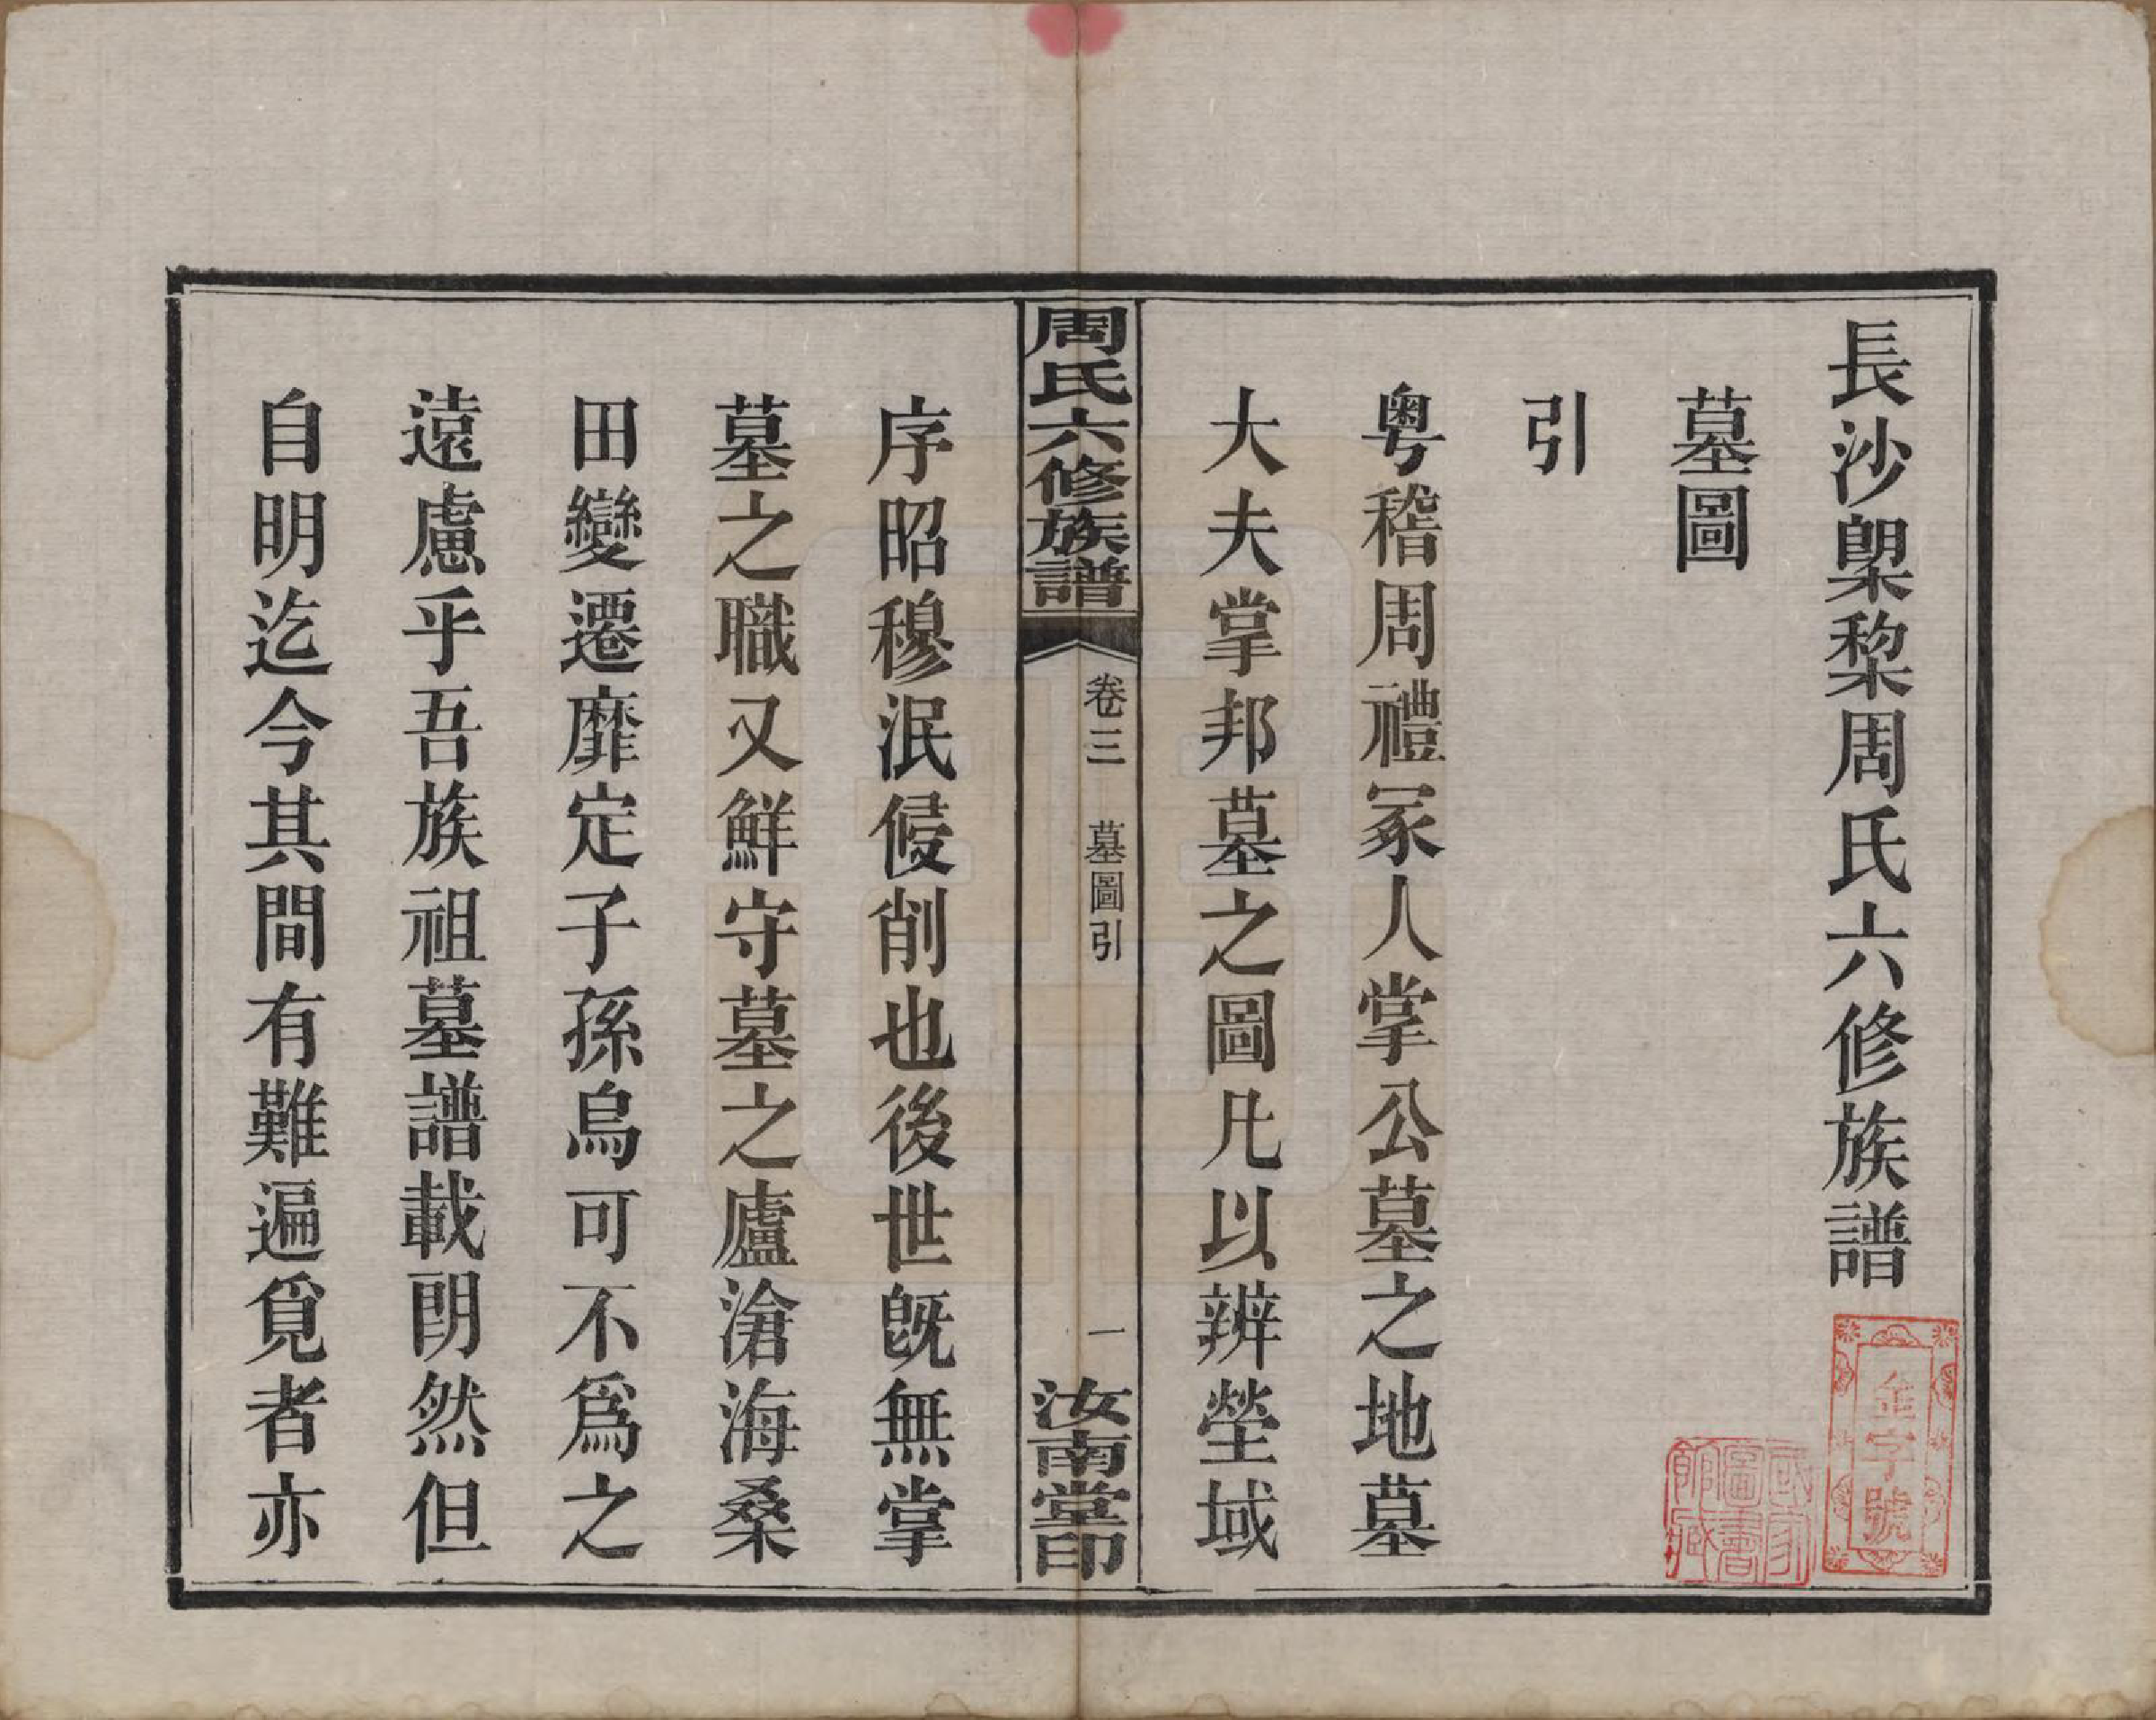 長沙㮮棃周氏六修族譜
墓圖
引
粵稽周禮冢人掌公墓之地墓
大夫掌邦墓之圖凡以辨塋域
周氏六修族譜
卷三 墓圖引
一
汝南堂印
序昭穆泯侵削也後世旣無掌
墓之職又鮮守墓之廬滄海桑
田變遷靡定子孫烏可不爲之
遠慮乎吾族祖墓譜載朗然但
自明迄今其間有難遍覓者亦
金字號
國家圖書館藏